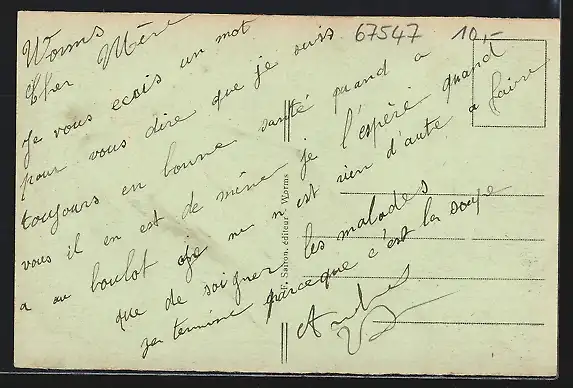 67547 10,-
Worms
Cher Mère
Je vous ecois un mot
pour vous dire que je suis
toujours en bonne santé quand a
vous il en est de même je l'espère quand
a au boulot je ne n est rien d'aute a faire
que de soigner les malades
je termine parceque c'est la soupe
André
F. Sairon, éditeur - Worms